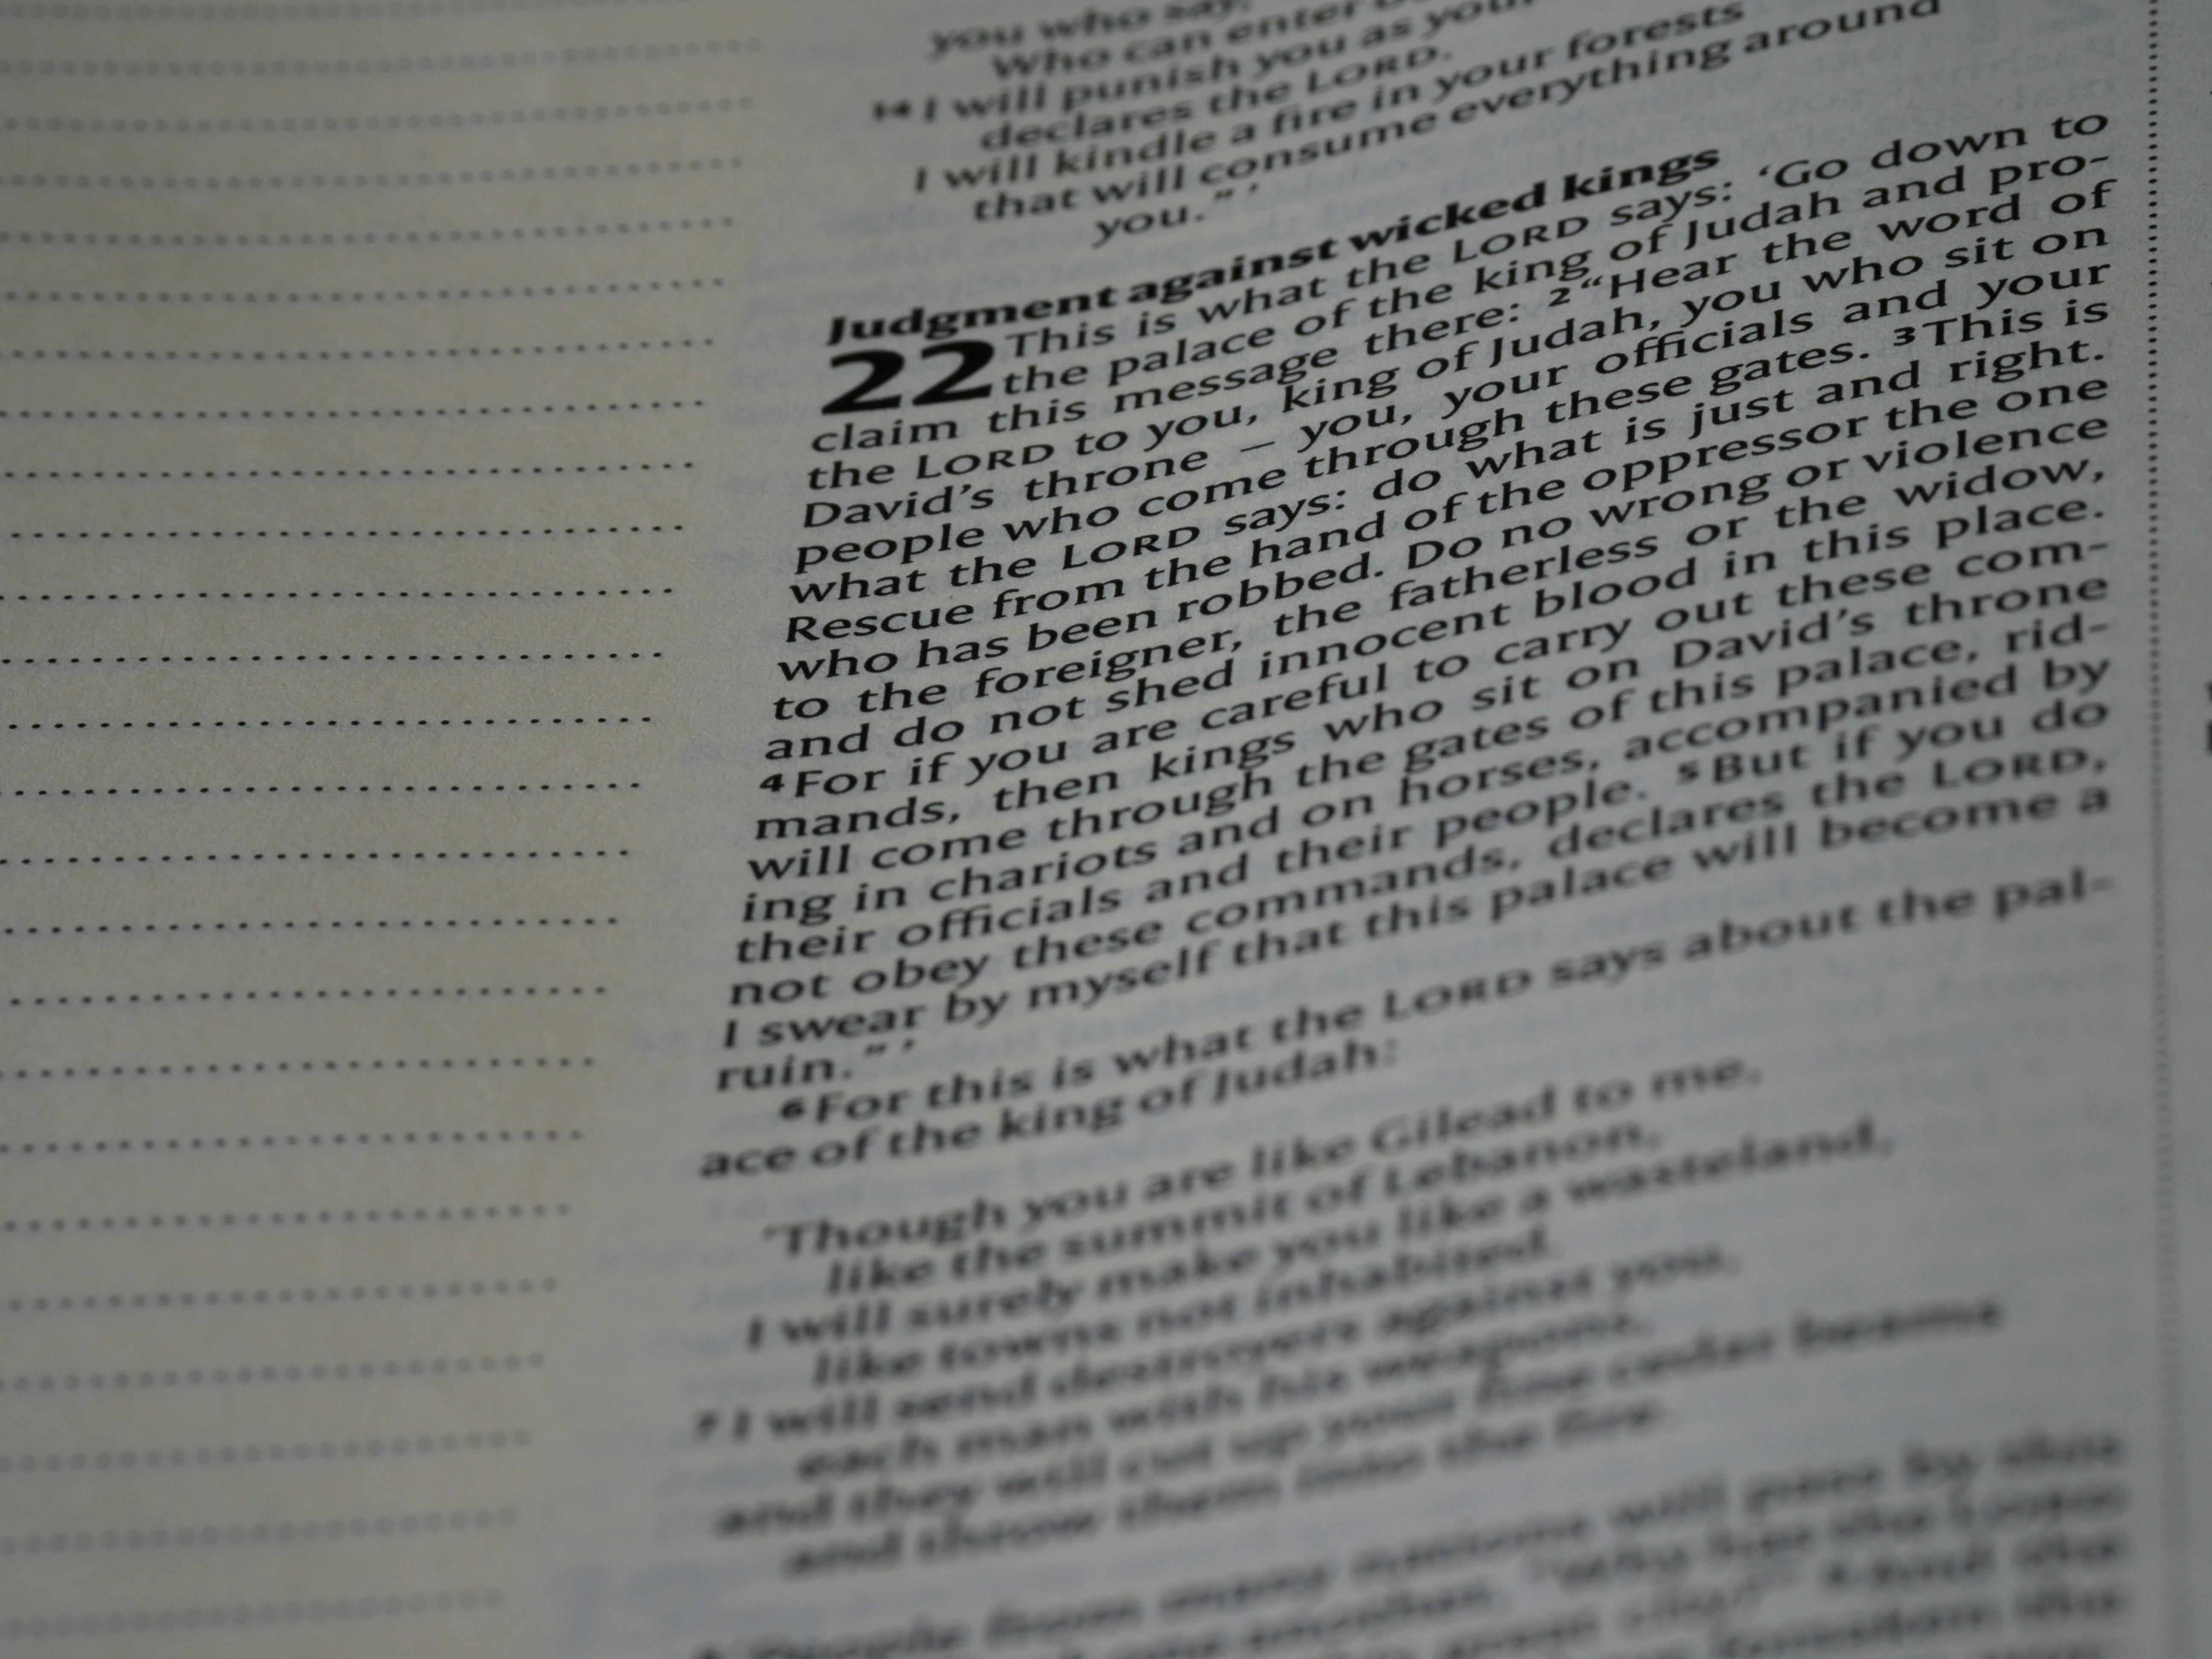 you who say,
'Who can enter
14 I will punish you as your
declares the LORD.
I will kindle a fire in your forests
that will consume everything around
you.” ’
Judgment against wicked kings
22 This is what the LORD says: ‘Go down to
the palace of the king of Judah and pro-
claim this message there: 2 “Hear the word of
the LORD to you, king of Judah, you who sit on
David’s throne – you, your officials and your
people who come through these gates. 3 This is
what the LORD says: do what is just and right.
Rescue from the hand of the oppressor the one
who has been robbed. Do no wrong or violence
to the foreigner, the fatherless or the widow,
and do not shed innocent blood in this place.
4 For if you are careful to carry out these com-
mands, then kings who sit on David’s throne
will come through the gates of this palace, rid-
ing in chariots and on horses, accompanied by
their officials and their people. 5 But if you do
not obey these commands, declares the LORD,
I swear by myself that this palace will become a
ruin.” ’
6 For this is what the LORD says about the pal-
ace of the king of Judah:
‘Though you are like Gilead to me,
like the summit of Lebanon,
I will surely make you like a wasteland,
like towns not inhabited.
7 I will send destroyers against you,
each man with his weapons,
and they will cut up your fine cedar beams
and throw them into the fire.
People from many nations will pass by this